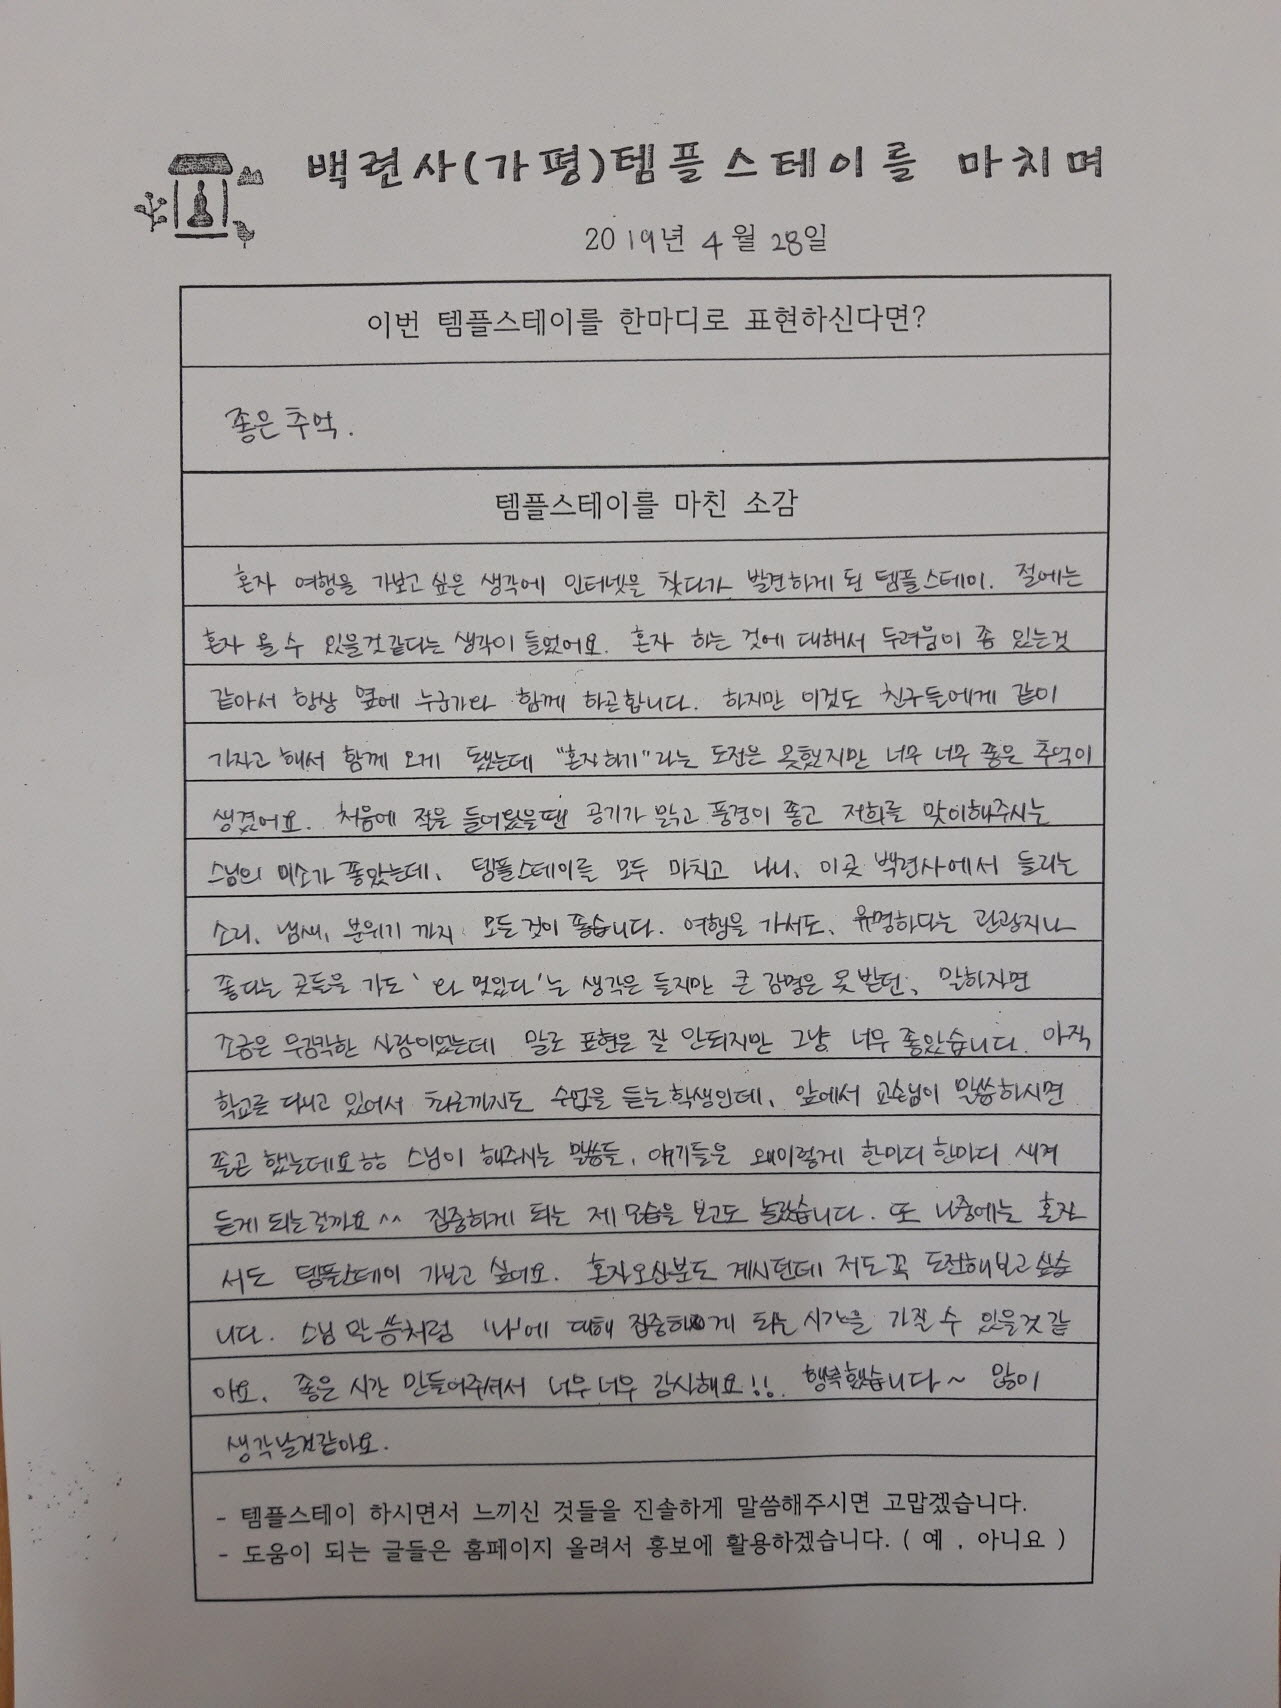 백련사(가평)템플스테이를 마치며
2019년 4월 28일
이번 템플스테이를 한마디로 표현하신다면?
좋은 추억.
템플스테이를 마친 소감
혼자 여행을 가보고 싶은 생각에 인터넷을 찾다가 발견하게 된 템플스테이. 절에는
혼자 올 수 있을것같다는 생각이 들었어요. 혼자 하는 것에 대해서 두려움이 좀 있는것
같아서 항상 옆에 누군가와 함께 하곤합니다. 하지만 이것도 친구들에게 같이
가자고 해서 함께 오게 됐는데 "혼자하기"라는 도전은 못했지만 너무 너무 좋은 추억이
생겼어요. 처음에 절을 들어왔을땐 공기가 맑고 풍경이 좋고 저희를 맞이해주시는
스님의 미소가 좋았는데, 템플스테이를 모두 마치고 나니, 이곳 백련사에서 들리는
소리, 냄새, 분위기 까지 모든 것이 좋습니다. 여행을 가서도, 유명하다는 관광지나
좋다는 곳들을 가도 '와 멋있다'는 생각은 들지만 큰 감명은 못 받던, 말하자면
조금은 무감각한 사람이었는데 말로 표현은 잘 안되지만 그냥 너무 좋았습니다. 아직
학교를 다니고 있어서 하루까지도 수업을 듣는 학생인데, 앞에서 교수님이 말씀하시면
졸곤 했는데요ㅎㅎ 스님이 해주시는 말씀들, 얘기들은 왜이렇게 한마디 한마디 새겨
듣게 되는걸까요^^ 집중하게 되는 제 모습을 보고도 놀랐습니다. 또 나중에는 혼자
서도 템플스테이 가보고 싶어요. 혼자오신분도 계시던데 저도 꼭 도전해보고싶습
니다. 스님 말씀처럼 '나'에 대해 집중하게 되는 시간을 가질 수 있을것 같
아요. 좋은 시간 만들어주셔서 너무 너무 감사해요!! 행복했습니다~ 많이
생각날것같아요.
- 템플스테이 하시면서 느끼신 것들을 진솔하게 말씀해주시면 고맙겠습니다.
- 도움이 되는 글들은 홈페이지 올려서 홍보에 활용하겠습니다. ( 예 , 아니요 )